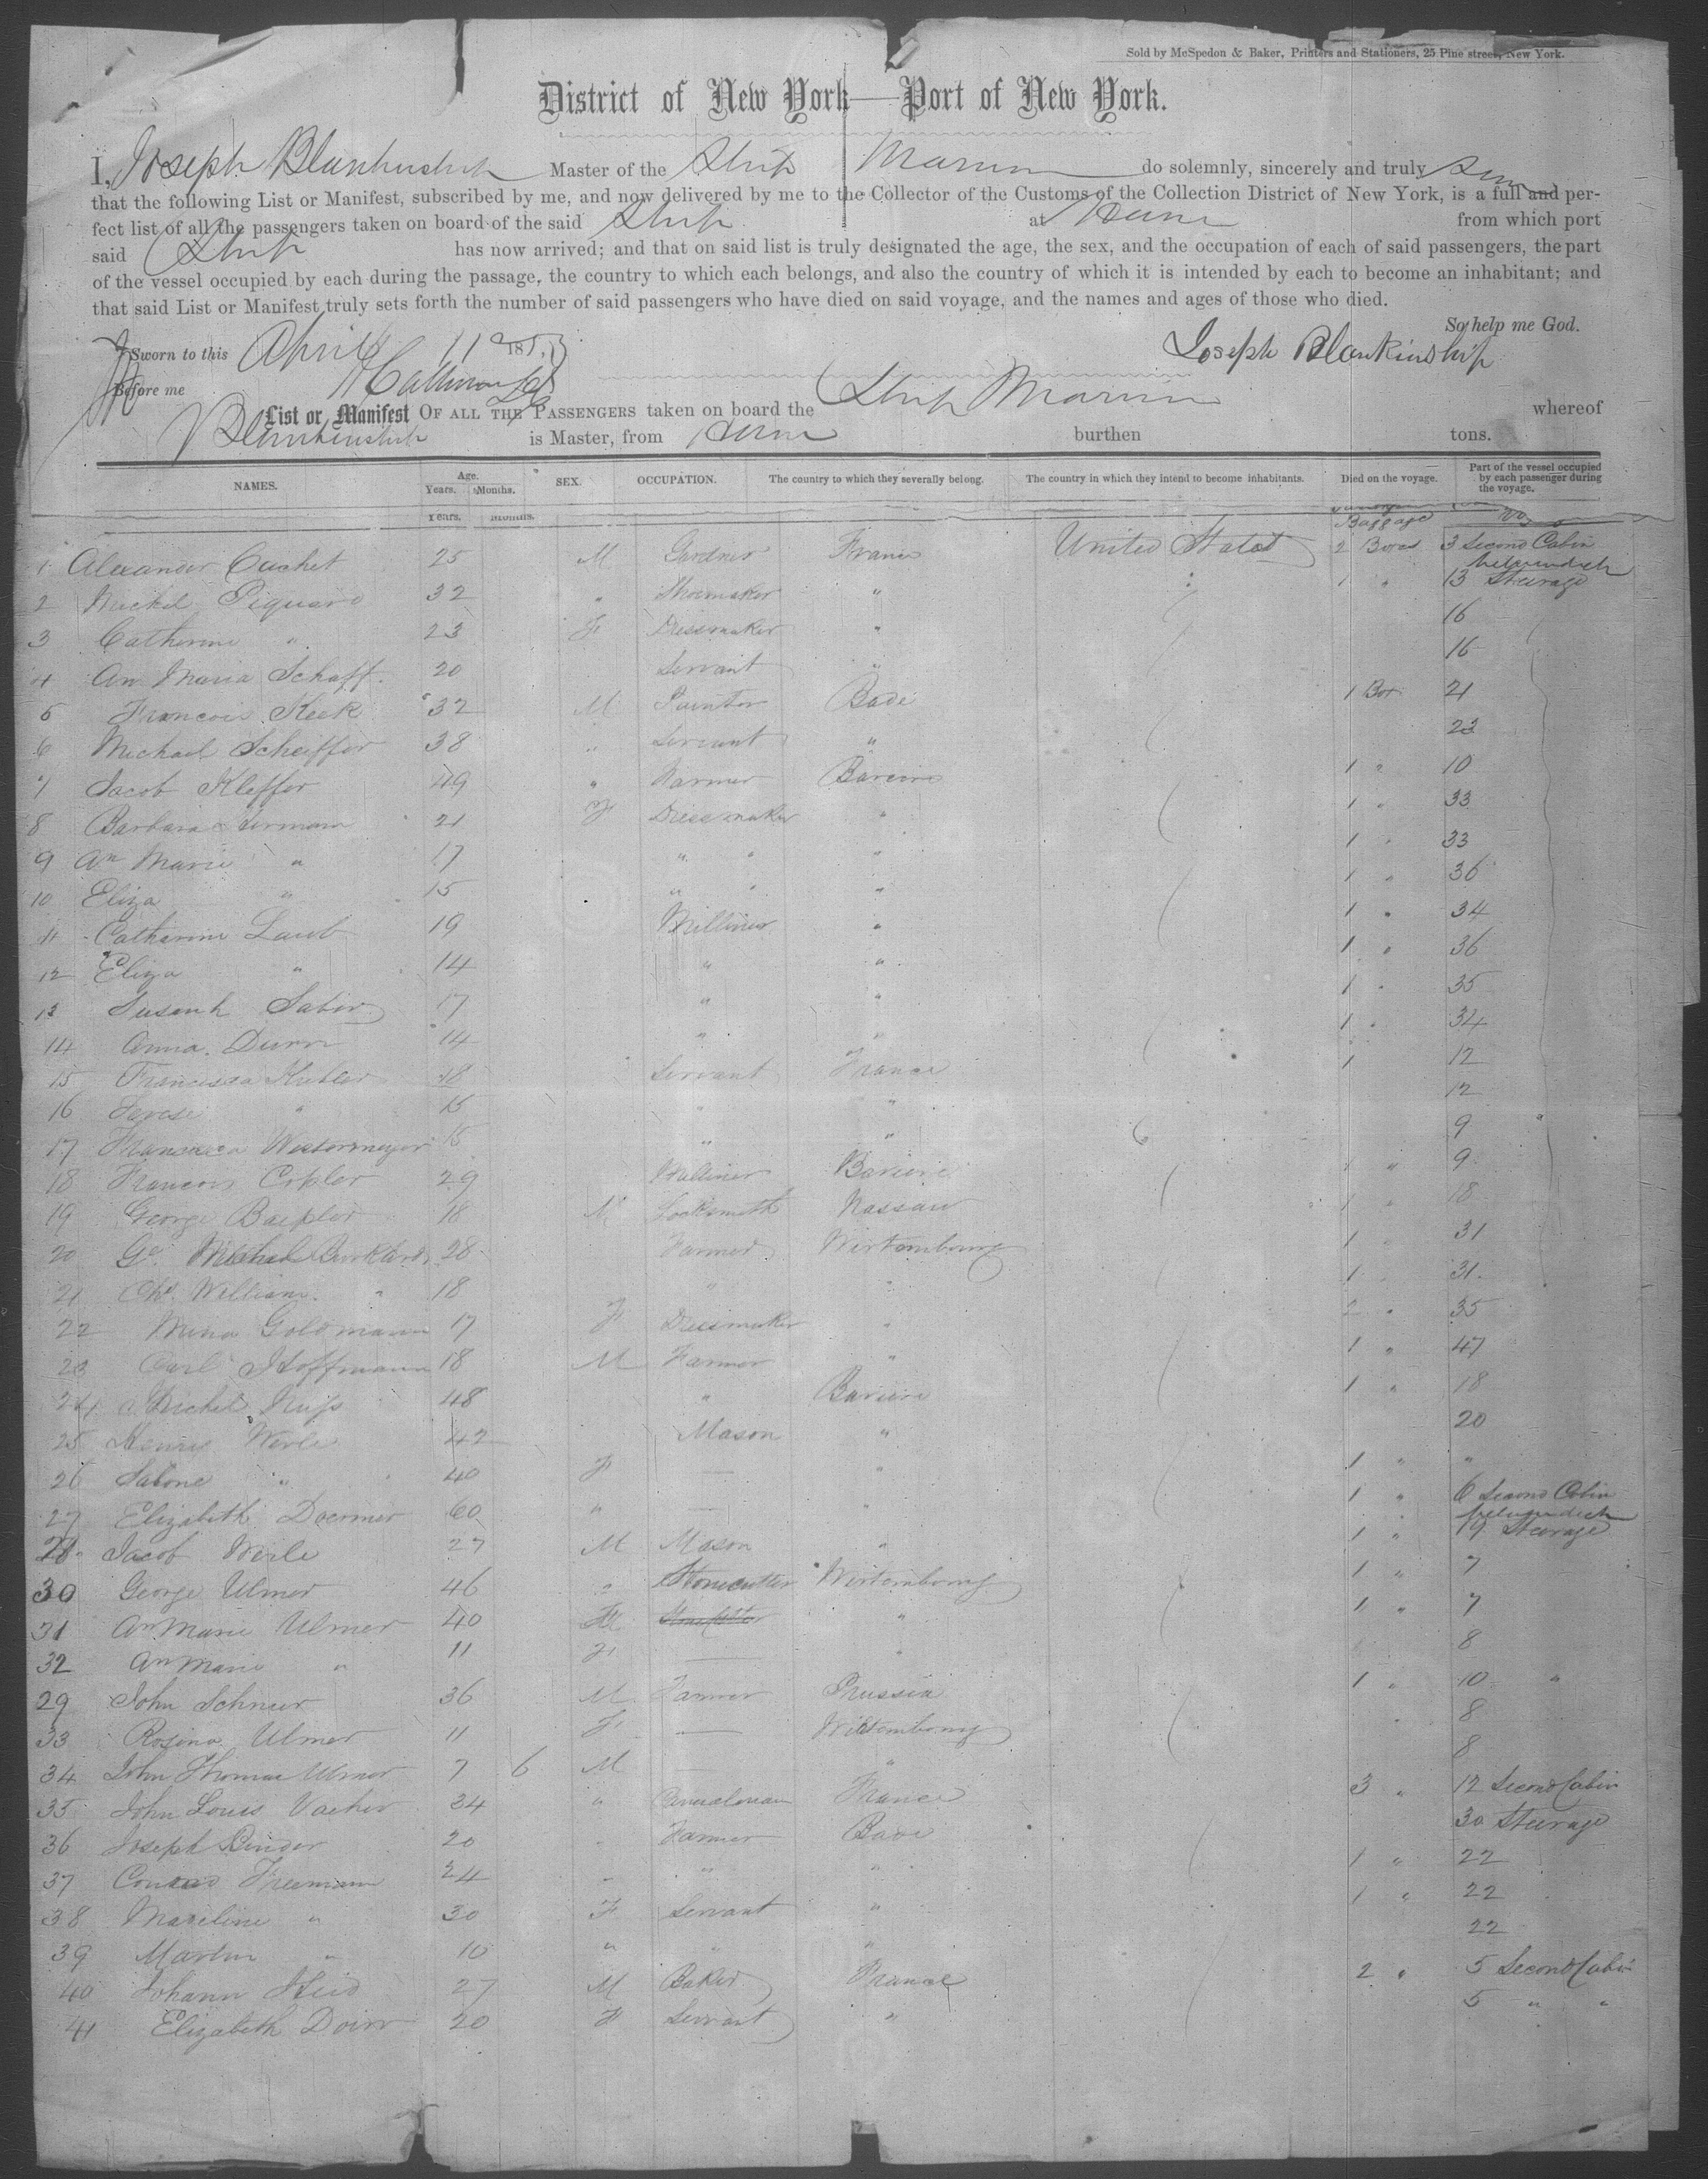 Sold by McSpedon & Baker, Printers and Stationers, 25 Pine street, New York.
District of New York—Port of New York.
I, Joseph Blankinship Master of the Ship do solemnly, sincerely and truly
that the following List or Manifest, subscribed by me, and now delivered by me to the Collector of the Customs of the Collection District of New York, is a full and per-
fect list of all the passengers taken on board of the said Ship at from which port
said Ship has now arrived; and that on said list is truly designated the age, the sex, and the occupation of each of said passengers, the part
of the vessel occupied by each during the passage, the country to which each belongs, and also the country of which it is intended by each to become an inhabitant; and
that said List or Manifest truly sets forth the number of said passengers who have died on said voyage, and the names and ages of those who died.
So help me God.
Sworn to this April 11 185 Joseph Blankinship
Before me
List or Manifest OF ALL THE PASSENGERS taken on board the Ship whereof
Blankinship is Master, from burthen tons.
NAMES. Age. Years. Months. SEX. OCCUPATION. The country to which they severally belong. The country in which they intend to become inhabitants. Died on the voyage. Part of the vessel occupied by each passenger during the voyage.
Years. Months. Baggage No
1 Alexander Cuchet 25 M Gardner France United States 2 Boxes 3 Second Cabin
2 Michel Piquard 32 " Shoemaker " 1 " 13 Steerage
3 Catherine " 23 F Dressmaker " 16
4 An Maria Schaff 20 Servant " 16
5 Francois Keek 32 M Painter Bade 1 Box 21
6 Michael Scheiffer 38 " Servant " 23
7 Jacob Kleffer 49 " Farmer 1 " 10
8 Barbara 21 F Dressmaker " 1 " 33
9 An Marie " 17 " " " 1 " 33
10 Eliza " 15 " " " 1 " 36
11 Catharine Laub 19 Milliner " 1 " 34
12 Eliza " 14 " " 1 " 36
13 17 " " 1 " 35
14 Anna 14 " " 1 " 34
15 Francisca Kubler 18 Servant France 1 12
16 " 15 " " 12
17 Westermeyer 15 " " 9
18 Francois 29 Milliner Baviere 1 " 9
19 George Baepler 18 M Locksmith Nassau 1 " 18
20 Ge Michael 28 Farmer Wirtembourg 1 " 31
21 Chs William " 18 " " 1 " 31
22 Mina Goldmann 17 F Dressmaker " 2 " 35
23 Carl Hoffmann 18 M Farmer " 1 " 47
24 Michel 48 " Baviere 1 " 18
25 Henry Werle 42 Mason " 20
26 " 40 F — " 1 " "
27 Elizabeth Doermer 60 " — " 1 " 6 Second Cabin
28 Jacob Werle 27 M Mason " 1 " 19 Steerage
30 George Ulmer 46 " Stonecutter Wirtembourg 1 " 7
31 An Marie Ulmer 40 F " 1 " 7
32 An Marie " 11 F — " 8
29 John Schneer 36 M Farmer Prussia 1 " 10 "
33 Rosina Ulmer 11 F — Wirtembourg 8
34 John Thomas Ulmer 7 6 M — " 8
35 John Louis Vacher 24 " France 3 " 12 Second Cabin
36 Joseph Binder 20 " Farmer Bade 30 Steerage
37 Conrad Freemann 24 " " " 1 " 22
38 " 30 F Servant " 1 " 22
39 Martin " 10 " " " 22
40 Johann Heid 27 M Baker France 2 " 5 Second Cabin
41 Elizabeth Doirr 20 F Servant " 5 " "